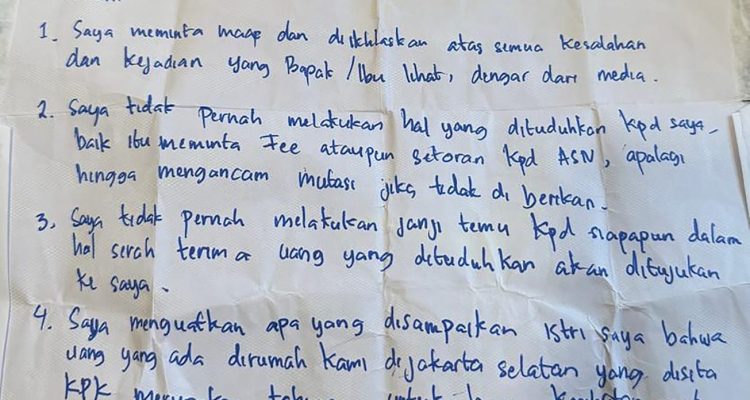 1. Saya meminta maap dan diikhlaskan atas semua kesalahan
dan kejadian yang Bapak/Ibu lihat, dengar dari media.
2. Saya tidak pernah melakukan hal yang dituduhkan kpd saya,
baik itu meminta Fee ataupun setoran kpd ASN, apalagi
hingga mengancam mutasi jika tidak di berikan.
3. Saya tidak pernah melakukan janji temu kpd siapapun dalam
hal serah terima uang yang dituduhkan akan ditujukan
ke saya.
4. Saya menguatkan apa yang disampaikan istri saya bahwa
uang yang ada dirumah kami dijakarta selatan yang disita
KPK